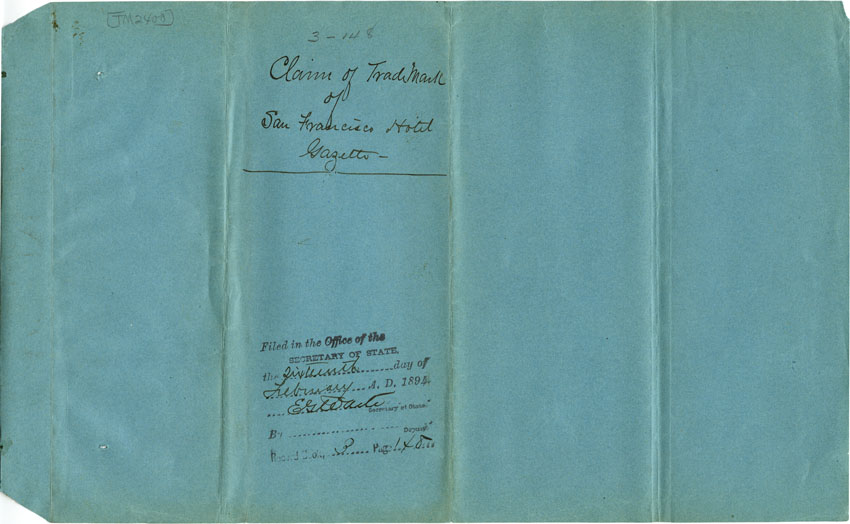 3-148
Claim of TradeMark
of
San Francisco Hotel
Gazette-
Filed in the Office of the
SECRETARY OF STATE,
the Sixteenth day of
February A. D. 1894
Secretary of State.
By Deputy
Record Book, Page